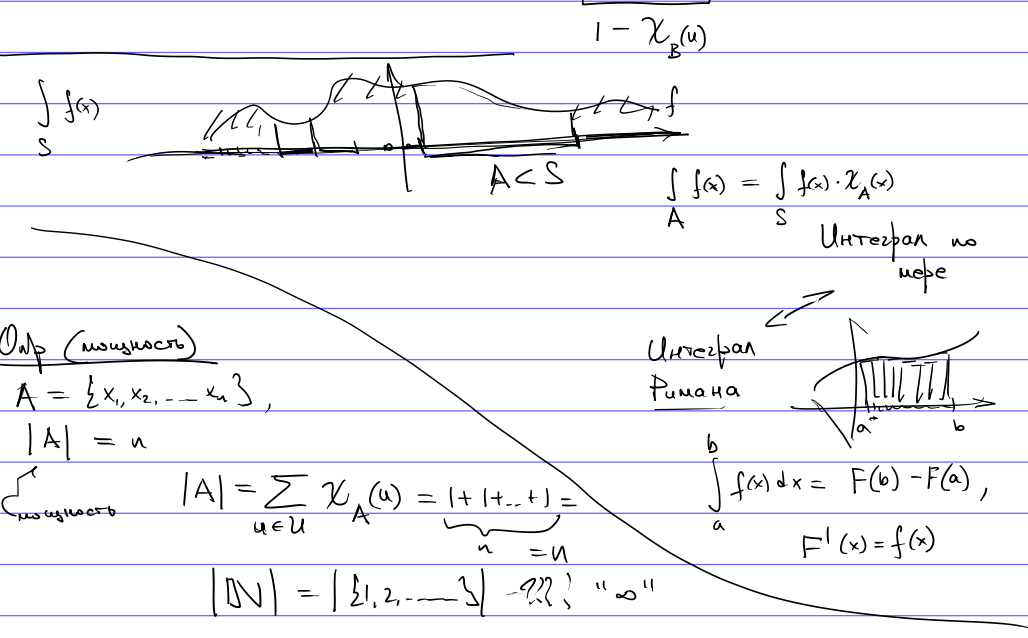 1 - χ_B(u)
∫_S f(x)
f
A ⊂ S
∫_A f(x) = ∫_S f(x)·χ_A(x)
Интеграл по
мере
Опр (мощность)
A = {x₁, x₂, ... xₙ},
|A| = n
мощность
|A| = ∑_{u∈U} χ_A(u) = 1+1+...+1 =
n
= n
|ℕ| = |{1, 2, ...}| - ??? "∞"
Интеграл
Римана
a b
∫_a^b f(x) dx = F(b) - F(a),
F'(x) = f(x)